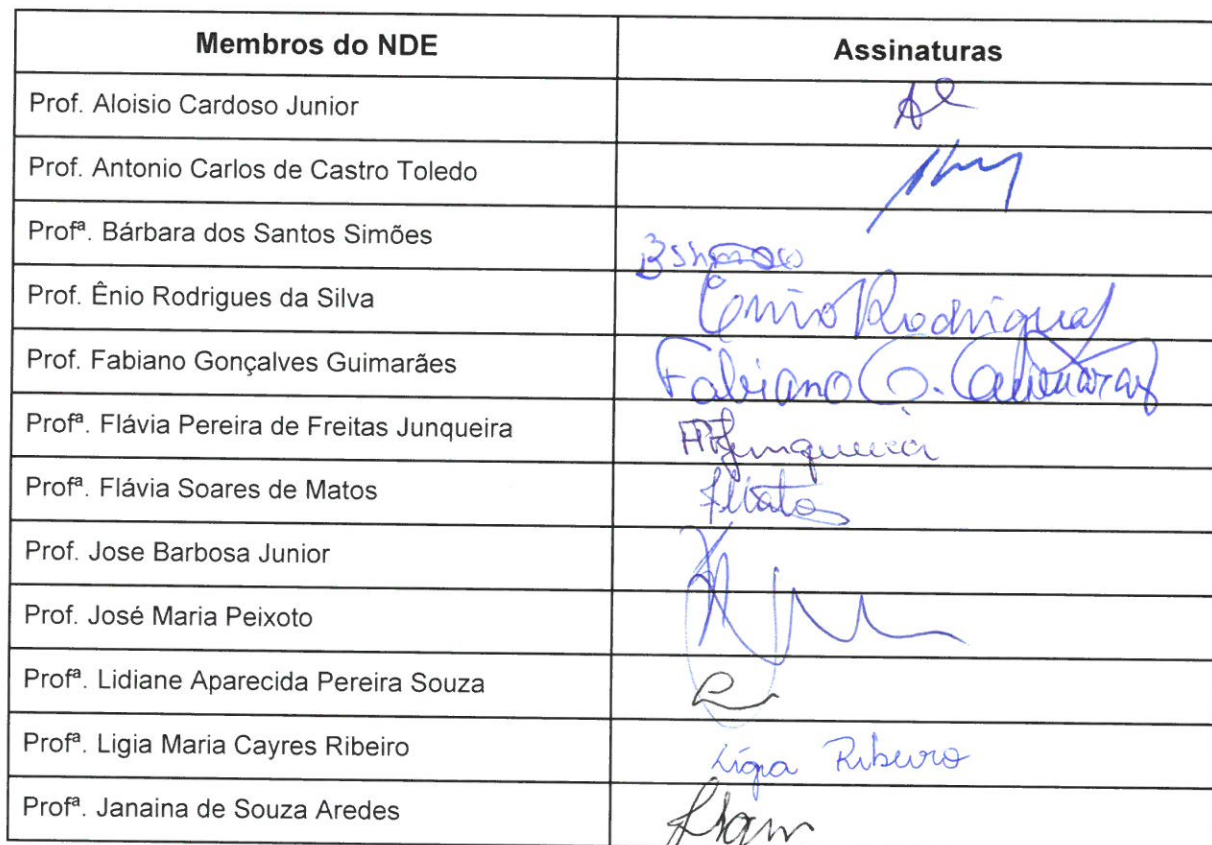 Membros do NDE Assinaturas
Prof. Aloisio Cardoso Junior
Prof. Antonio Carlos de Castro Toledo
Profª. Bárbara dos Santos Simões
Prof. Ênio Rodrigues da Silva Ênio Rodrigues
Prof. Fabiano Gonçalves Guimarães Fabiano G. Guimarães
Profª. Flávia Pereira de Freitas Junqueira FPFJunqueira
Profª. Flávia Soares de Matos FMatos
Prof. Jose Barbosa Junior
Prof. José Maria Peixoto
Profª. Lidiane Aparecida Pereira Souza
Profª. Ligia Maria Cayres Ribeiro Lígia Ribeiro
Profª. Janaina de Souza Aredes